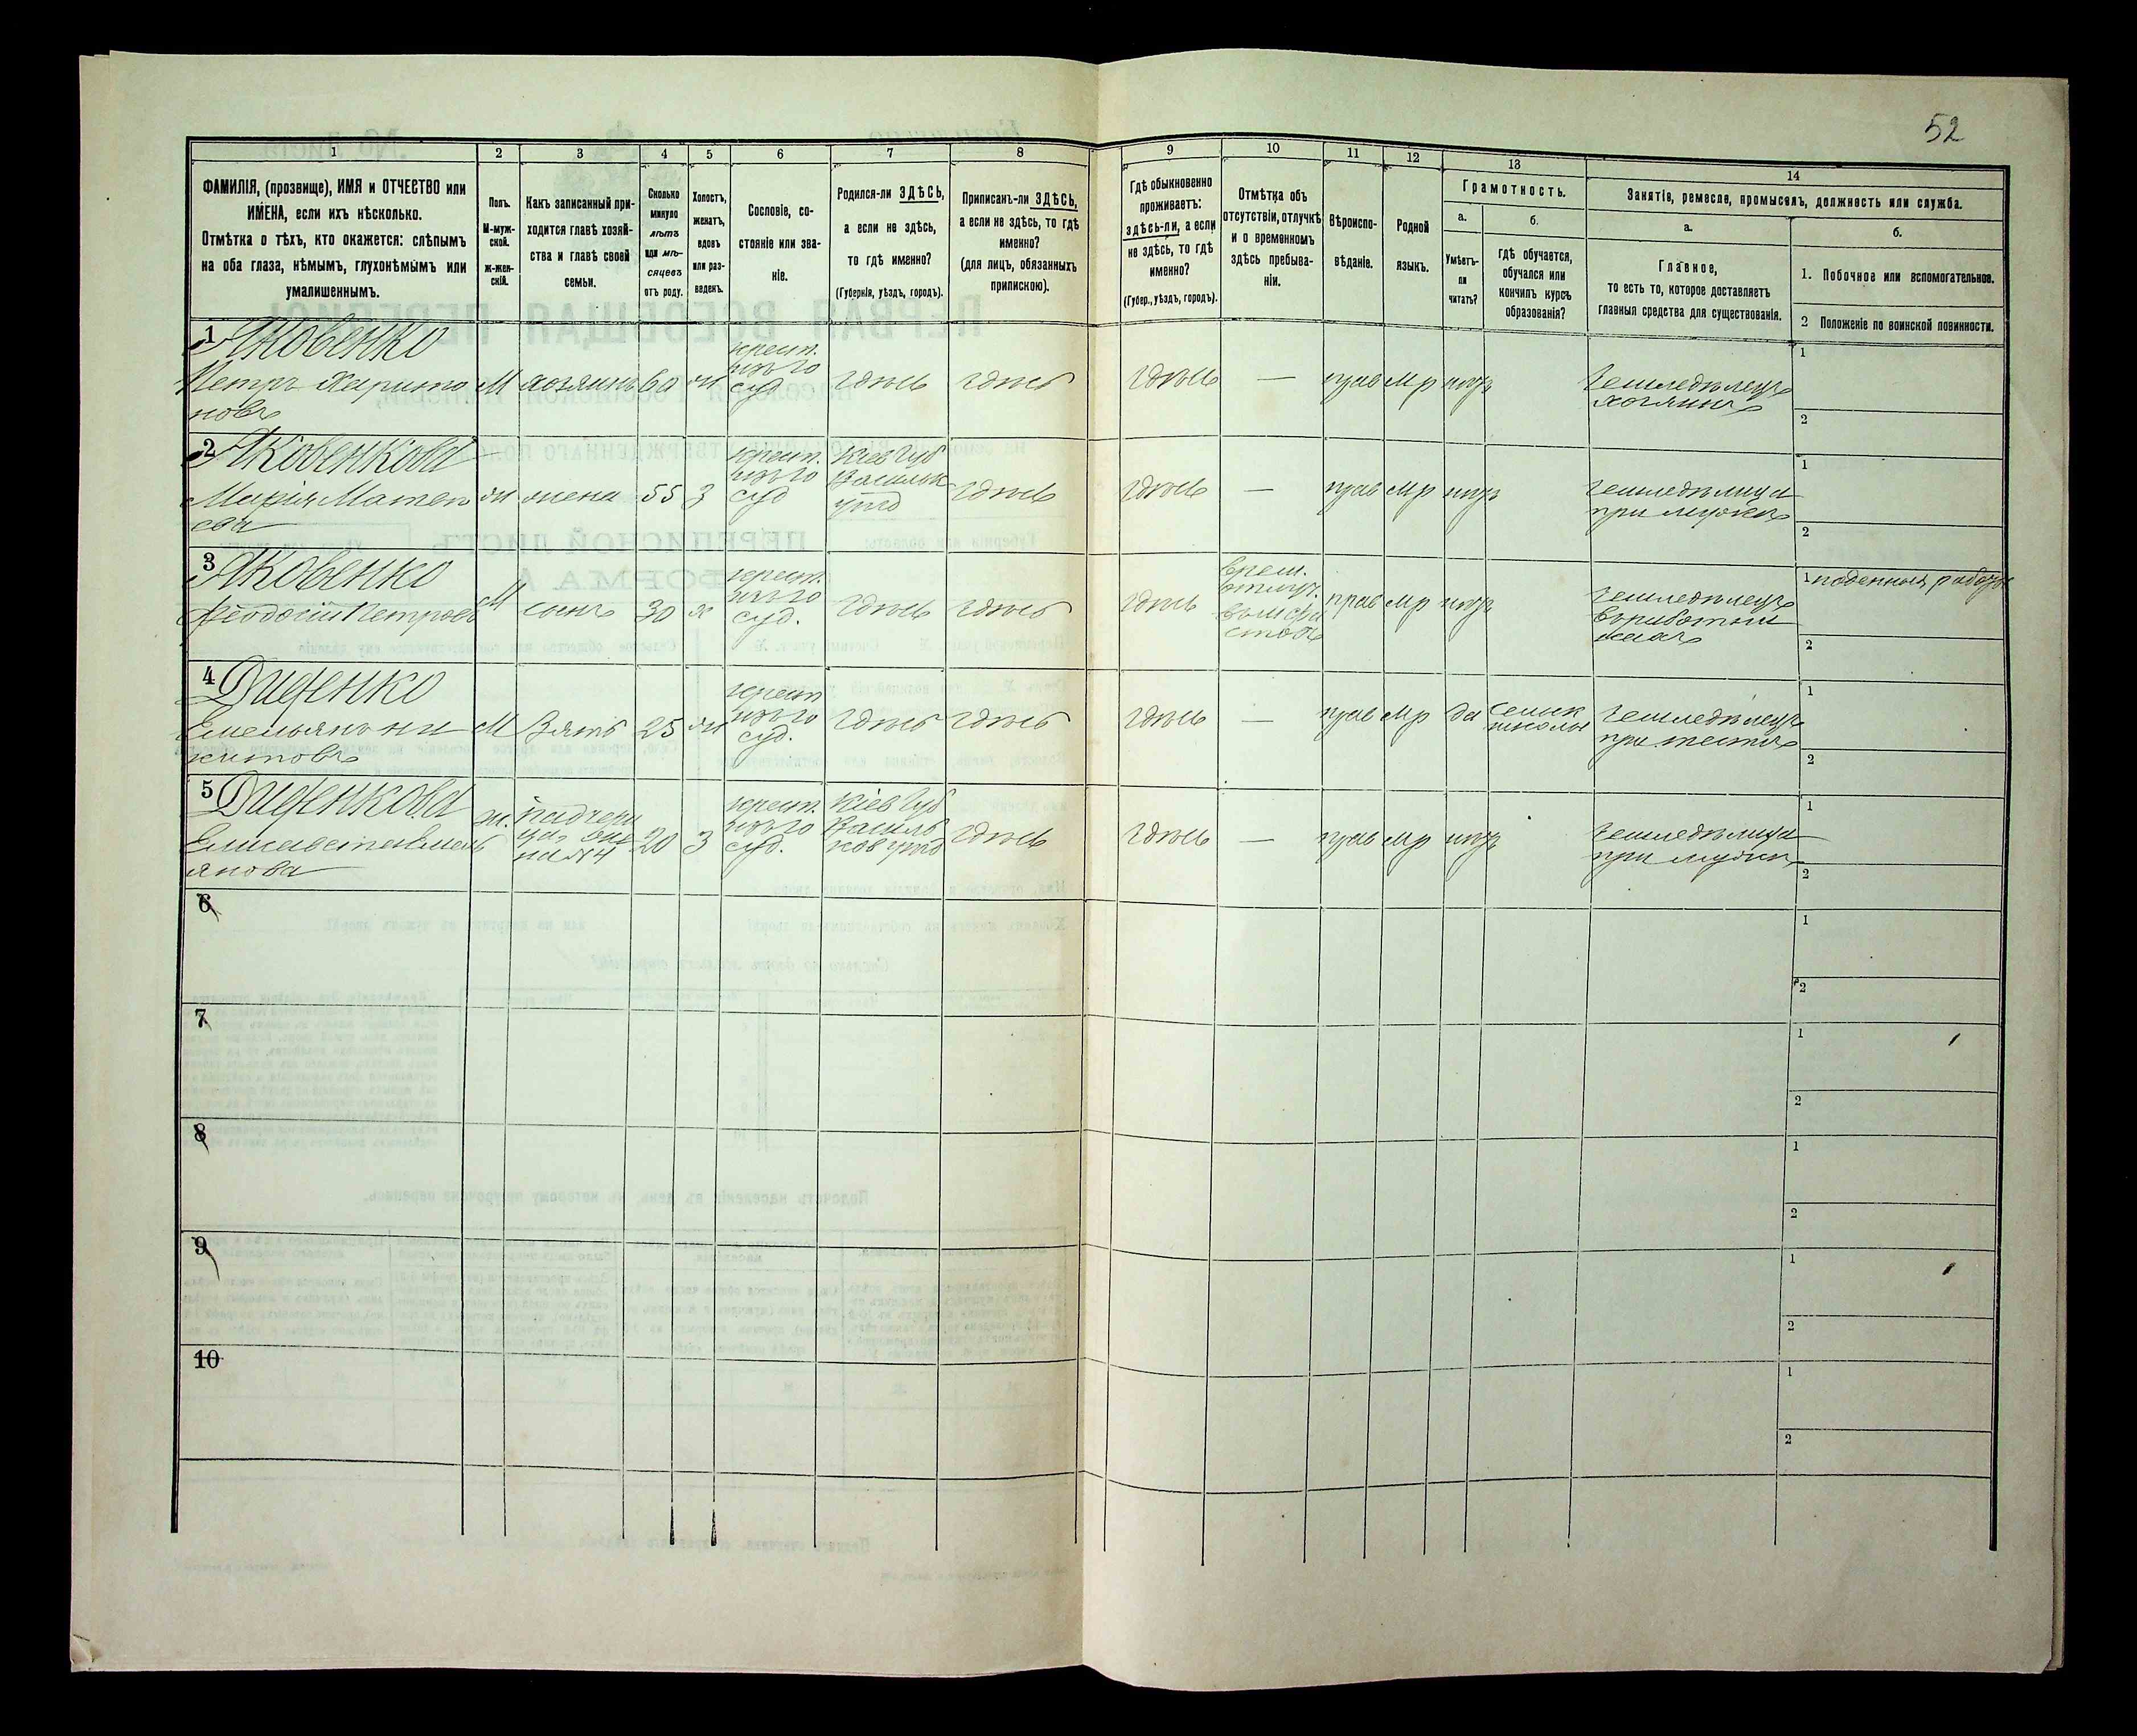 52
1 2 3 4 5 6 7 8 9 10 11 12 13 14
ФАМИЛІЯ, (прозвище), ИМЯ и ОТЧЕСТВО или
ИМЕНА, если ихъ нѣсколько.
Отмѣтка о тѣхъ, кто окажется: слѣпымъ
на оба глаза, нѣмымъ, глухонѣмымъ или
умалишеннымъ.
Полъ.
М-муж-
ской.
ж-жен-
скій.
Какъ записанный при-
ходится главѣ хозяй-
ства и главѣ своей
семьи.
Сколько
минуло
лѣтъ
или мѣ-
сяцевъ
отъ роду.
Холостъ,
женатъ,
вдовъ
или раз-
веденъ.
Сословіе, со-
стояніе или зва-
ніе.
Родился-ли ЗДѢСЬ,
а если не здѣсь,
то гдѣ именно?
(Губернія, уѣздъ, городъ).
Приписанъ-ли ЗДѢСЬ,
а если не здѣсь, то гдѣ
именно?
(для лицъ, обязанныхъ
припискою).
Гдѣ обыкновенно
проживаетъ:
здѣсь-ли, а если
не здѣсь, то гдѣ
именно?
(Губер., уѣздъ, городъ).
Отмѣтка объ
отсутствіи, отлучкѣ
и о временномъ
здѣсь пребыва-
ніи.
Вѣроиспо-
вѣданіе.
Родной
языкъ.
Грамотность.
а.
Умѣетъ-
ли
читать?
б.
Гдѣ обучается,
обучался или
кончилъ курсъ
образованія?
Занятіе, ремесло, промыселъ, должность или служба.
а.
Главное,
то есть то, которое доставляетъ
главныя средства для существованія.
б.
1. Побочное или вспомогательное.
2 Положеніе по воинской повинности.
1 Яковенко
Петръ Харито
новъ
М
хозяинъ
60
ж
крест.
суд
здѣсь
здѣсь
здѣсь
—
прав
мр
нѣтъ
земледѣлецъ
хозяинъ
1
2
2 Яковенкова
Марія Матве
ева
ж
жена
55
З
крест.
суд
Кіев Губ
Васильк
уѣзд
здѣсь
здѣсь
—
прав
мр
нѣтъ
земледѣлица
при мужѣ
1
2
3 Яковенко
Феодосій Петровъ
М
сынъ
30
х
крест.
суд.
здѣсь
здѣсь
здѣсь
врем.
отлуч.
прав
мр
нѣтъ
земледѣлецъ
1 поденныя работы
2
4 Диденко
Емельянъ Ни
китовъ
М
Зять
25
ж
крест
суд.
здѣсь
здѣсь
здѣсь
—
прав
мр
да
сельск
школы
земледѣлецъ
при тестѣ
1
2
5 Диденкова
Елисавета Емель
янова
ж.
падчери
ца, жена
№4
20
З
крест.
суд.
Кіев Губ
Василь
ков уѣзд
здѣсь
здѣсь
—
прав
мр
нѣтъ
земледѣлица
при мужѣ
1
2
6
1
2
7
1
2
8
1
2
9
1
2
10
1
2